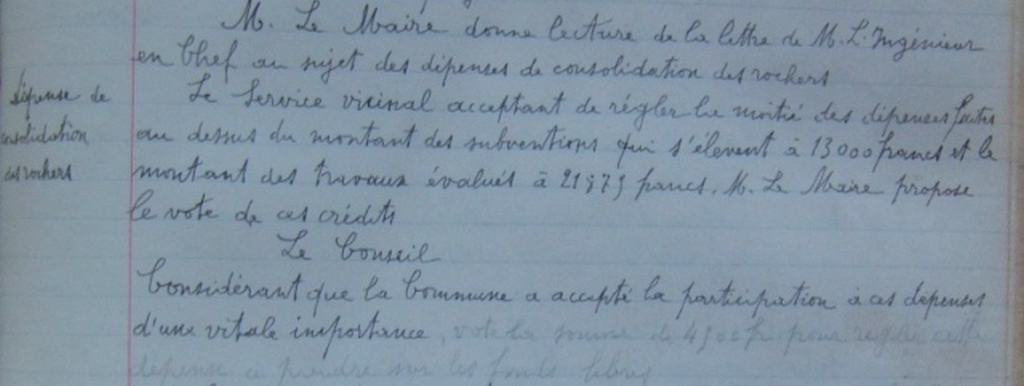 M. Le Maire donne lecture de la lettre de M. L. Ingénieur
en Chef au sujet des dépenses de consolidation des rochers
dépense de
consolidation
des rochers
Le Service vicinal acceptant de régler la moitié des dépenses faites
au dessus du montant des subventions qui s'élèvent à 13000 francs et le
montant des travaux évalués à francs, M. Le Maire propose
le vote de ces crédits
Le Conseil
Considérant que la Commune a accepté la participation à ces dépenses
d'une vitale importance, vote la somme de fr pour régler cette
dépense à prendre sur les fonds libres